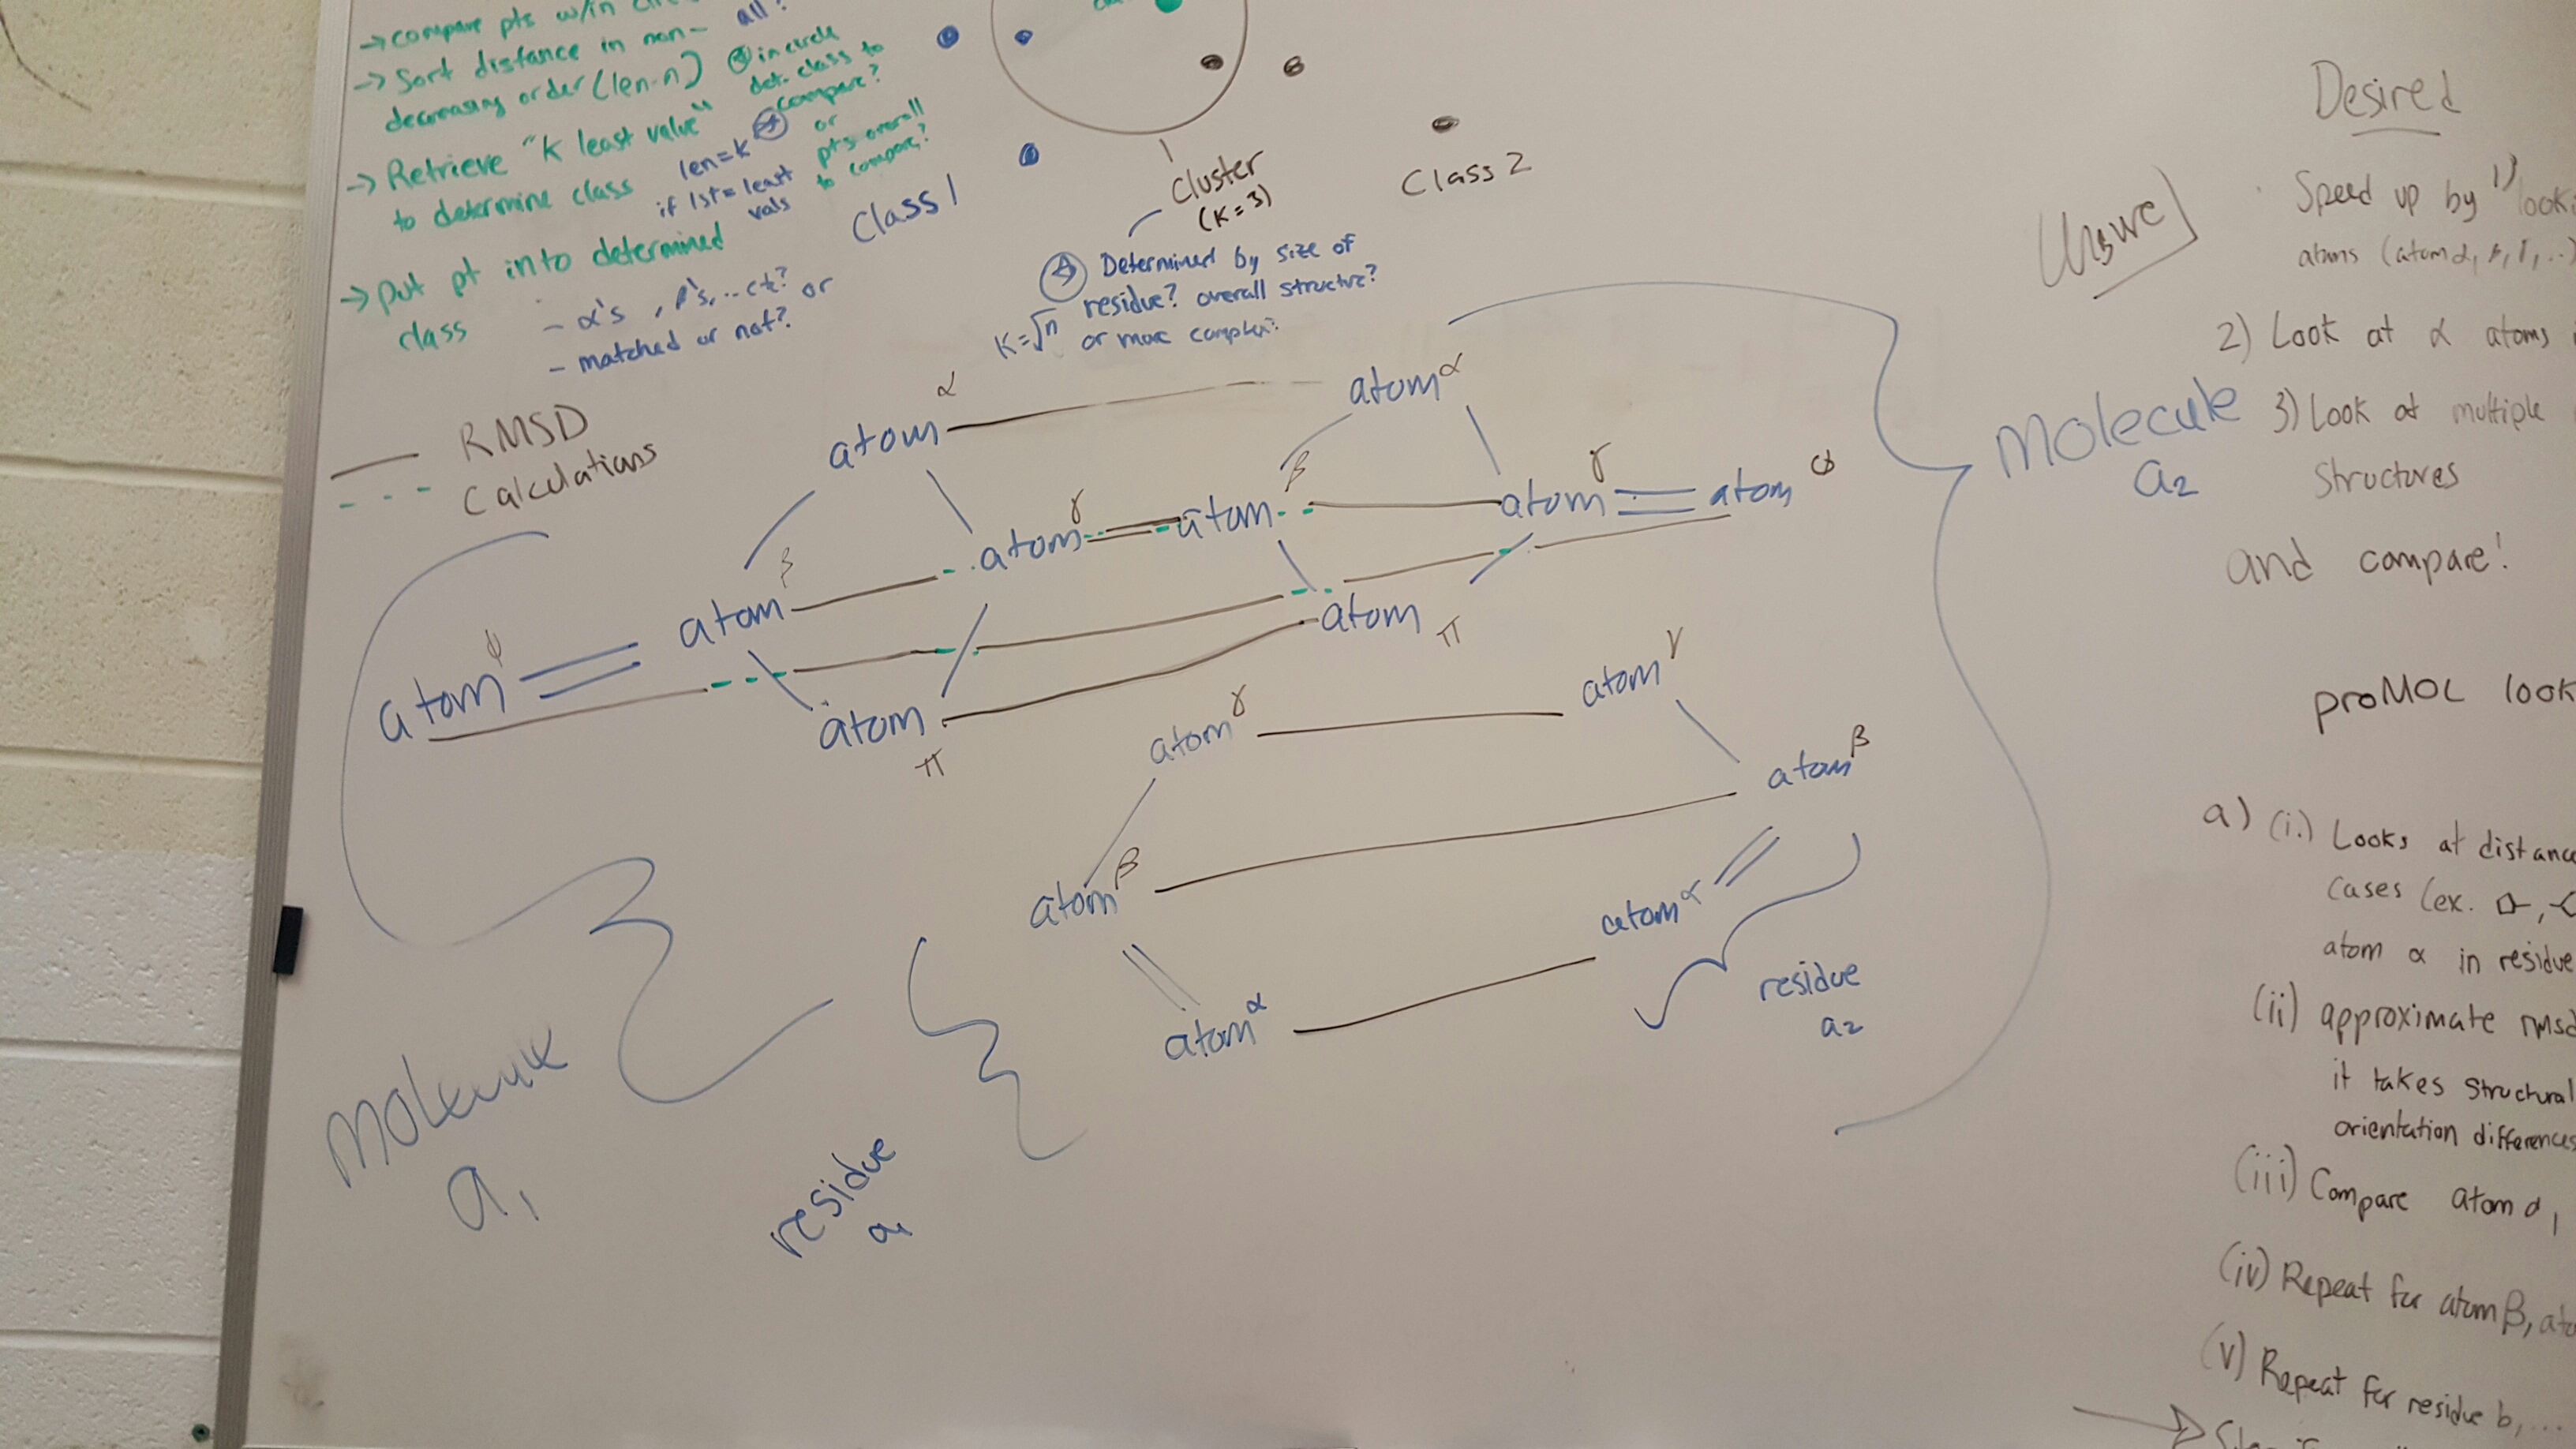 → compare pts w/in
all?
→ Sort distance in non-
decreasing order (len-n)
③ in circle
det. class to
compare?
→ Retrieve "K least value"
to determine class
len=k
or
if lst = least
vals
pts overall
to compare?
→ put pt into determined
class
- α's, β's, ..etc? or
- matched or not?
Class 1
Cluster
(K=3)
Class 2
Determined by size of
residue? overall structure?
K=√n or more complex?
RMSD
Calculations
atom α
atom α
atom γ
atom β
atom γ
atom ϕ
atom β
atom π
atom ψ
atom π
atom γ
atom γ
atom β
atom β
atom α
atom α
residue
a2
residue
a1
Molecule
a1
Molecule
a2
Desired
Unsure
Speed up by 1) look
atoms (atom α, β, γ, ..)
2) Look at α atoms
3) Look at multiple
Structures
and compare!
proMOL look
a) (i.) Looks at distanc
cases (ex.
atom α in residue
(ii) approximate rmsd
it takes structural
orientation differences
(iii) Compare atom α,
(iv) Repeat for atom β, ato
(v) Repeat for residue b, ...